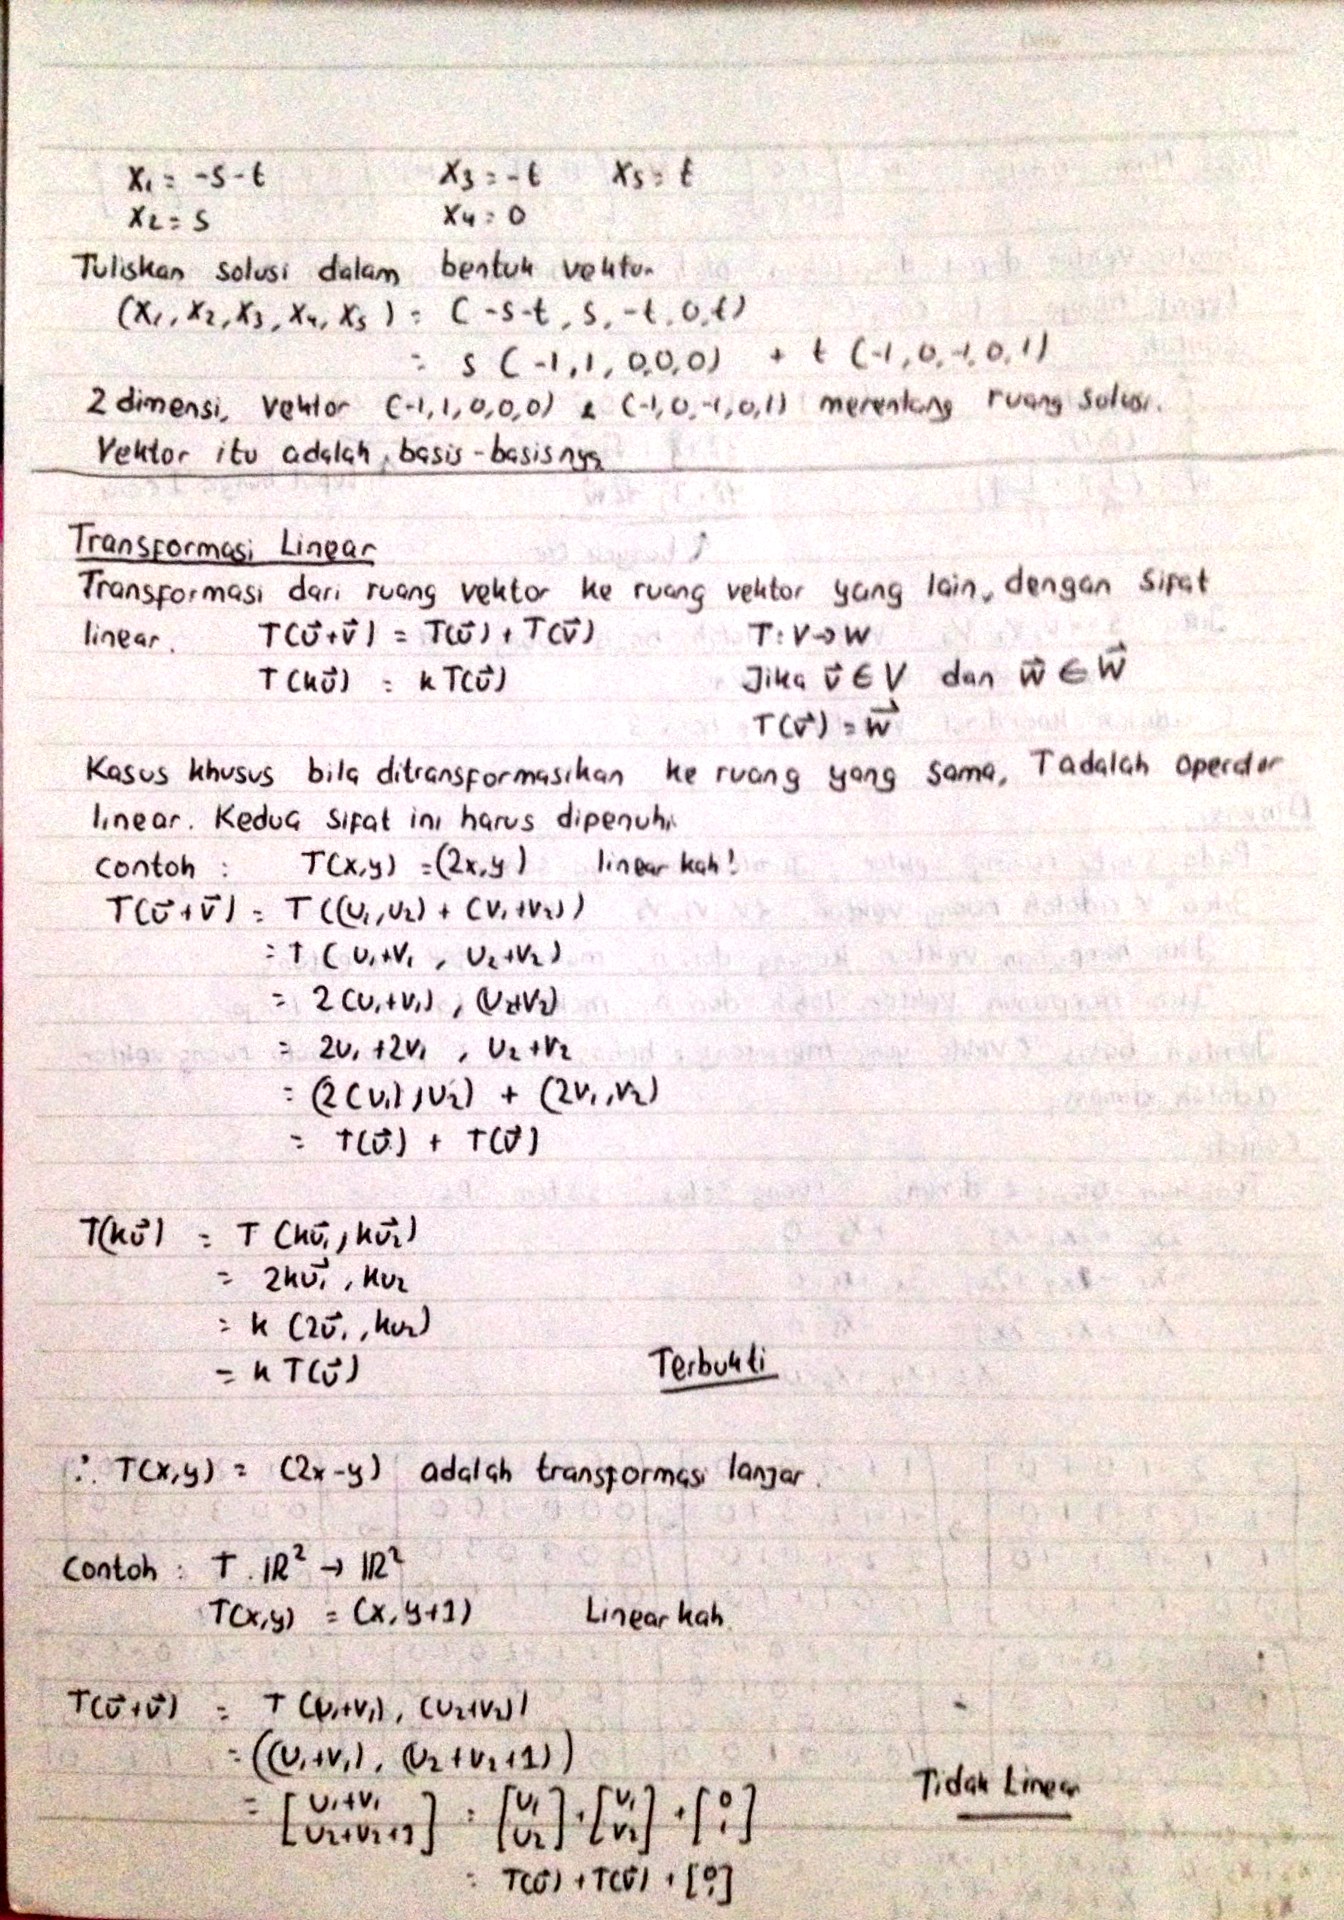 x₁ = -s-t x₃ = -t x₅ = t
x₂ = s x₄ = 0
Tuliskan solusi dalam bentuk vektor
(x₁, x₂, x₃, x₄, x₅) = (-s-t, s, -t, 0, t)
= s (-1, 1, 0,0,0) + t (-1, 0, -1, 0, 1)
2 dimensi, vektor (-1, 1, 0, 0, 0) & (-1, 0, -1, 0, 1) merentang ruang solusi.
Vektor itu adalah basis-basisnya
Transformasi Linear
Transformasi dari ruang vektor ke ruang vektor yang lain, dengan sifat
linear. T(u⃗+v⃗) = T(u⃗) + T(v⃗) T: V→W
T(ku⃗) = kT(u⃗) Jika v⃗ ∈ V dan w⃗ ∈ W⃗
T(v⃗) = w⃗
Kasus khusus bila ditransformasikan ke ruang yang sama, T adalah operator
linear. Kedua sifat ini harus dipenuhi
contoh : T(x,y) = (2x,y) linear kah!
T(u⃗+v⃗) = T((u₁,u₂) + (v₁+v₂))
= T (u₁+v₁, u₂+v₂)
= 2(u₁+v₁), (u₂+v₂)
= 2u₁+2v₁, u₂+v₂
= (2(u₁),u₂) + (2v₁,v₂)
= T(u⃗) + T(v⃗)
T(ku⃗) = T(ku⃗₁, ku⃗₂)
= 2ku⃗₁, ku₂
= k (2u⃗₁, ku₂)
= k T(u⃗) Terbukti
∴ T(x,y) = (2x-y) adalah transformasi lanjar.
Contoh : T. ℝ² → ℝ²
T(x,y) = (x, y+1) Linear kah.
T(u⃗+v⃗) = T (u₁+v₁), (u₂+v₂))
= ((u₁+v₁), (u₂+v₂+1))
= [u₁+v₁ = [u₁ + [v₁ + [0 Tidak Linear
u₂+v₂+1] u₂] v₂] 1]
= T(u⃗) + T(v⃗) + [0 1]